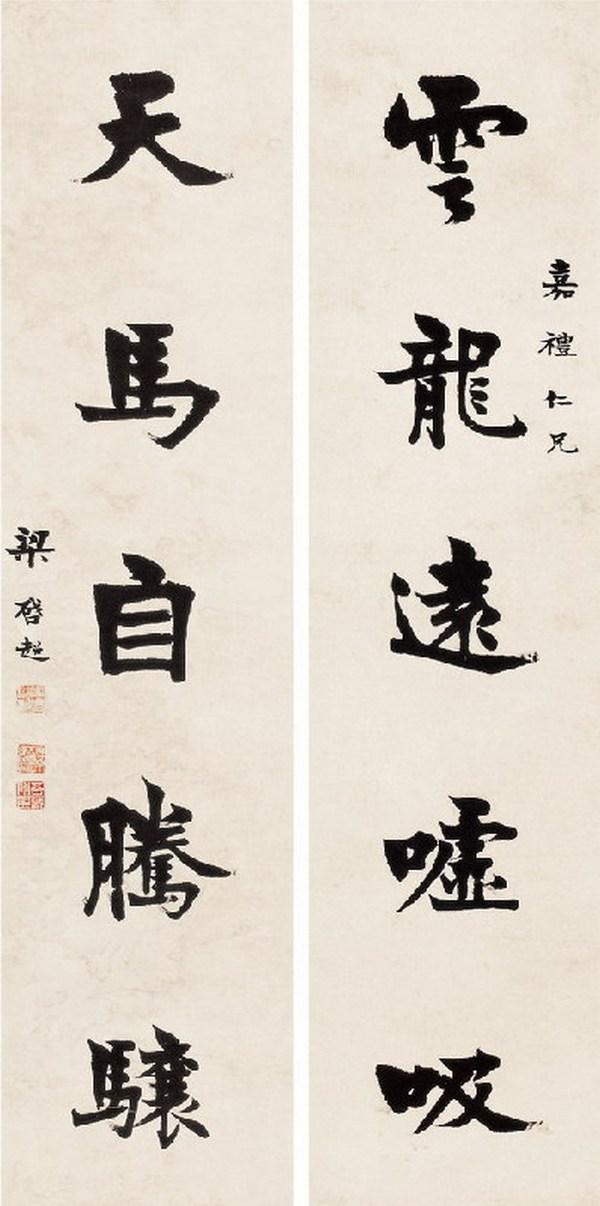 嘉禮仁兄
雲龍遠噓吸
天馬自騰驤
梁啓超